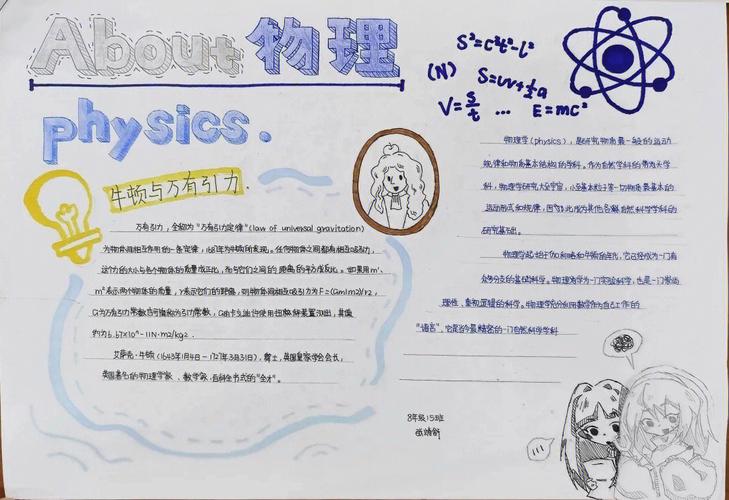 About 物理
physics.
S²=c²t²-l²
(N) S=uv+½a
V=s/t ... E=mc²
牛顿与万有引力.
万有引力,全称为"万有引力定律"(law of universal gravitation)
为物体间相互作用的一条定律,1687年为牛顿所发现。任何物体之间都有相互吸引力,
这个力的大小与各个物体的质量成正比,而与它们之间的距离的平方成反比。如果用m¹、
m²表示两个物体的质量,r表示它们的距离,则物体间相互吸引力为F=(Gm1m2)/r2,
G为万有引力常数
G由卡文迪许使用扭秤装置测出,其值
约为6.67×10^-11N·m2/kg2.
艾萨克·牛顿(1643年1月4日-1727年3月31日),爵士,英国皇家学会会长,
英国著名的物理学家、数学家,百科全书式的"全才"。
物理学(physics),是研究物质最一般的运动
规律和物质基本结构的学科。作为自然科学的带头学
科,物理学研究大至宇宙,小至基本粒子等一切物质最基本的
运动形式和规律,因此成为其他各自然科学学科的
研究基础。
物理学起始于伽利略和牛顿的年代,它已经成为一门有
众多分支的基础科学。物理学为一门实验科学,也是一门崇尚
理性、重视逻辑的科学。物理学充分利用数学作为自己工作的
"语言",它是当今最精密的一门自然科学学科
8年级15班